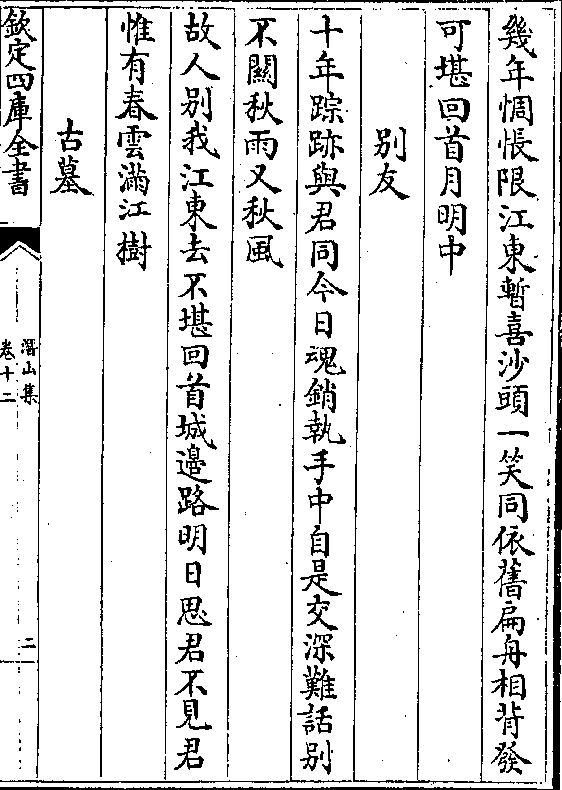 幾年惆悵限江東暫喜沙頭一笑同依舊扁舟相背發
可堪回首月明中
别友
十年踪跡與君同今日魂銷執手中自是交深難話别
不闗秋雨又秋風
故人别我江東去不堪回首城邉路明日思君不見君
惟有春雲滿江樹
古墓
欽定四庫全書
潛山集
卷十二
二